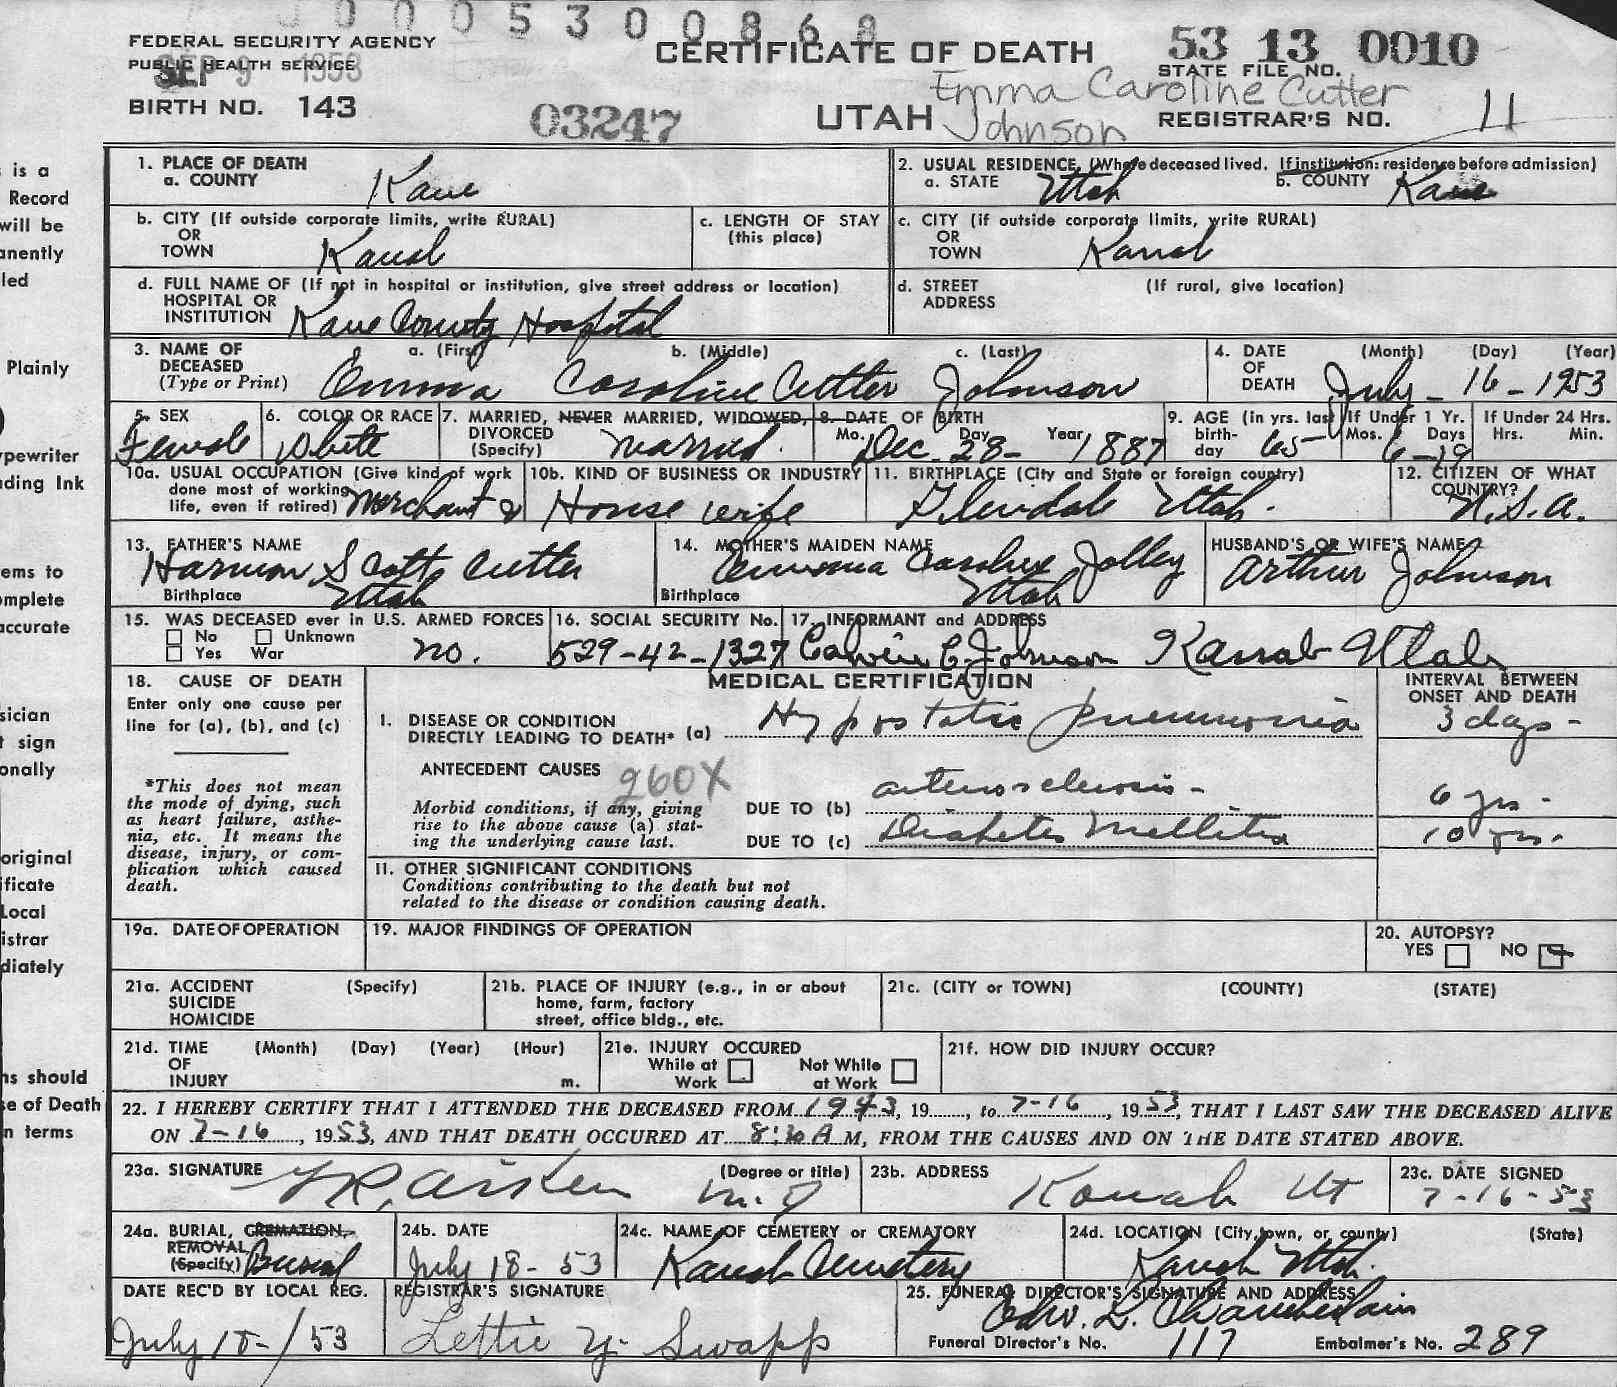 0 0 0 5 3 0 0 8 6 8
FEDERAL SECURITY AGENCY
PUBLIC HEALTH SERVICE
SEP 9 1953
BIRTH NO. 143
03247
CERTIFICATE OF DEATH
UTAH
Emma Caroline Cutter
Johnson
53 13 0010
STATE FILE NO.
REGISTRAR'S NO. 11
is a
Record
will be
anently
led
Plainly
ypewriter
ding Ink
ems to
omplete
accurate
sician
t sign
onally
original
ificate
Local
istrar
diately
ns should
se of Death
n terms
1. PLACE OF DEATH
a. COUNTY Kane
2. USUAL RESIDENCE, (Where deceased lived. If institution: residence before admission)
a. STATE Utah b. COUNTY Kane
b. CITY (If outside corporate limits, write RURAL)
OR
TOWN Kanab
c. LENGTH OF STAY
(this place)
c. CITY (if outside corporate limits, write RURAL)
OR
TOWN Kanab
d. FULL NAME OF (If not in hospital or institution, give street address or location)
HOSPITAL OR
INSTITUTION Kane County Hospital
d. STREET (If rural, give location)
ADDRESS
3. NAME OF DECEASED
(Type or Print)
a. (First) b. (Middle) c. (Last)
Emma Caroline Cutter Johnson
4. DATE OF DEATH (Month) (Day) (Year)
July 16-1953
5. SEX
Female
6. COLOR OR RACE
White
7. MARRIED, NEVER MARRIED, WIDOWED,
DIVORCED
(Specify) Married.
8. DATE OF BIRTH
Mo. Day Year
Dec. 28- 1887
9. AGE (in yrs. last birth-day 65
If Under 1 Yr. Mos. Days
6-19
If Under 24 Hrs.
Hrs. Min.
10a. USUAL OCCUPATION (Give kind of work
done most of working
life, even if retired) Merchant &
10b. KIND OF BUSINESS OR INDUSTRY
House wife
11. BIRTHPLACE (City and State or foreign country)
Glendale Utah.
12. CITIZEN OF WHAT
COUNTRY?
U.S.A.
13. FATHER'S NAME
Harmon Scott Cutter
Birthplace Utah
14. MOTHER'S MAIDEN NAME
Emma Caroline Jolley
Birthplace Utah
HUSBAND'S OR WIFE'S NAME
Arthur Johnson
15. WAS DECEASED ever in U.S. ARMED FORCES
No Unknown
Yes War no.
16. SOCIAL SECURITY No.
529-42-1327
17. INFORMANT and ADDRESS
Calvin C. Johnson Kanab Utah
18. CAUSE OF DEATH
Enter only one cause per
line for (a), (b), and (c)
*This does not mean
the mode of dying, such
as heart failure, asthe-
nia, etc. It means the
disease, injury, or com-
plication which caused
death.
MEDICAL CERTIFICATION
INTERVAL BETWEEN
ONSET AND DEATH
I. DISEASE OR CONDITION
DIRECTLY LEADING TO DEATH* (a) Hypostatic pneumonia 3 days -
ANTECEDENT CAUSES 260X
Morbid conditions, if any, giving
rise to the above cause (a) stat-
ing the underlying cause last.
DUE TO (b) arteriosclerosis - 6 yrs -
DUE TO (c) Diabetes Mellitus 10 yrs.
11. OTHER SIGNIFICANT CONDITIONS
Conditions contributing to the death but not
related to the disease or condition causing death.
19a. DATE OF OPERATION
19. MAJOR FINDINGS OF OPERATION
20. AUTOPSY?
YES NO
21a. ACCIDENT (Specify)
SUICIDE
HOMICIDE
21b. PLACE OF INJURY (e.g., in or about
home, farm, factory
street, office bldg., etc.
21c. (CITY or TOWN) (COUNTY) (STATE)
21d. TIME (Month) (Day) (Year) (Hour)
OF
INJURY m.
21e. INJURY OCCURED
While at Not While
Work at Work
21f. HOW DID INJURY OCCUR?
22. I HEREBY CERTIFY THAT I ATTENDED THE DECEASED FROM 1943, 19....., to 7-16, 1953, THAT I LAST SAW THE DECEASED ALIVE
ON 7-16, 1953, AND THAT DEATH OCCURED AT 8:30 A M, FROM THE CAUSES AND ON THE DATE STATED ABOVE.
23a. SIGNATURE (Degree or title)
Aiken M.D
23b. ADDRESS
Kanab Ut
23c. DATE SIGNED
7-16-53
24a. BURIAL, CREMATION,
REMOVAL
(Specify) Burial
24b. DATE
July 18-53
24c. NAME OF CEMETERY or CREMATORY
Kanab Cemetery
24d. LOCATION (City, town, or county) (State)
Kanab Utah.
DATE REC'D BY LOCAL REG.
July 18-/53
REGISTRAR'S SIGNATURE
Lettie Y. Swapp
25. FUNERAL DIRECTOR'S SIGNATURE AND ADDRESS
Edw. L. Chamberlain
Funeral Director's No. 117 Embalmer's No. 289